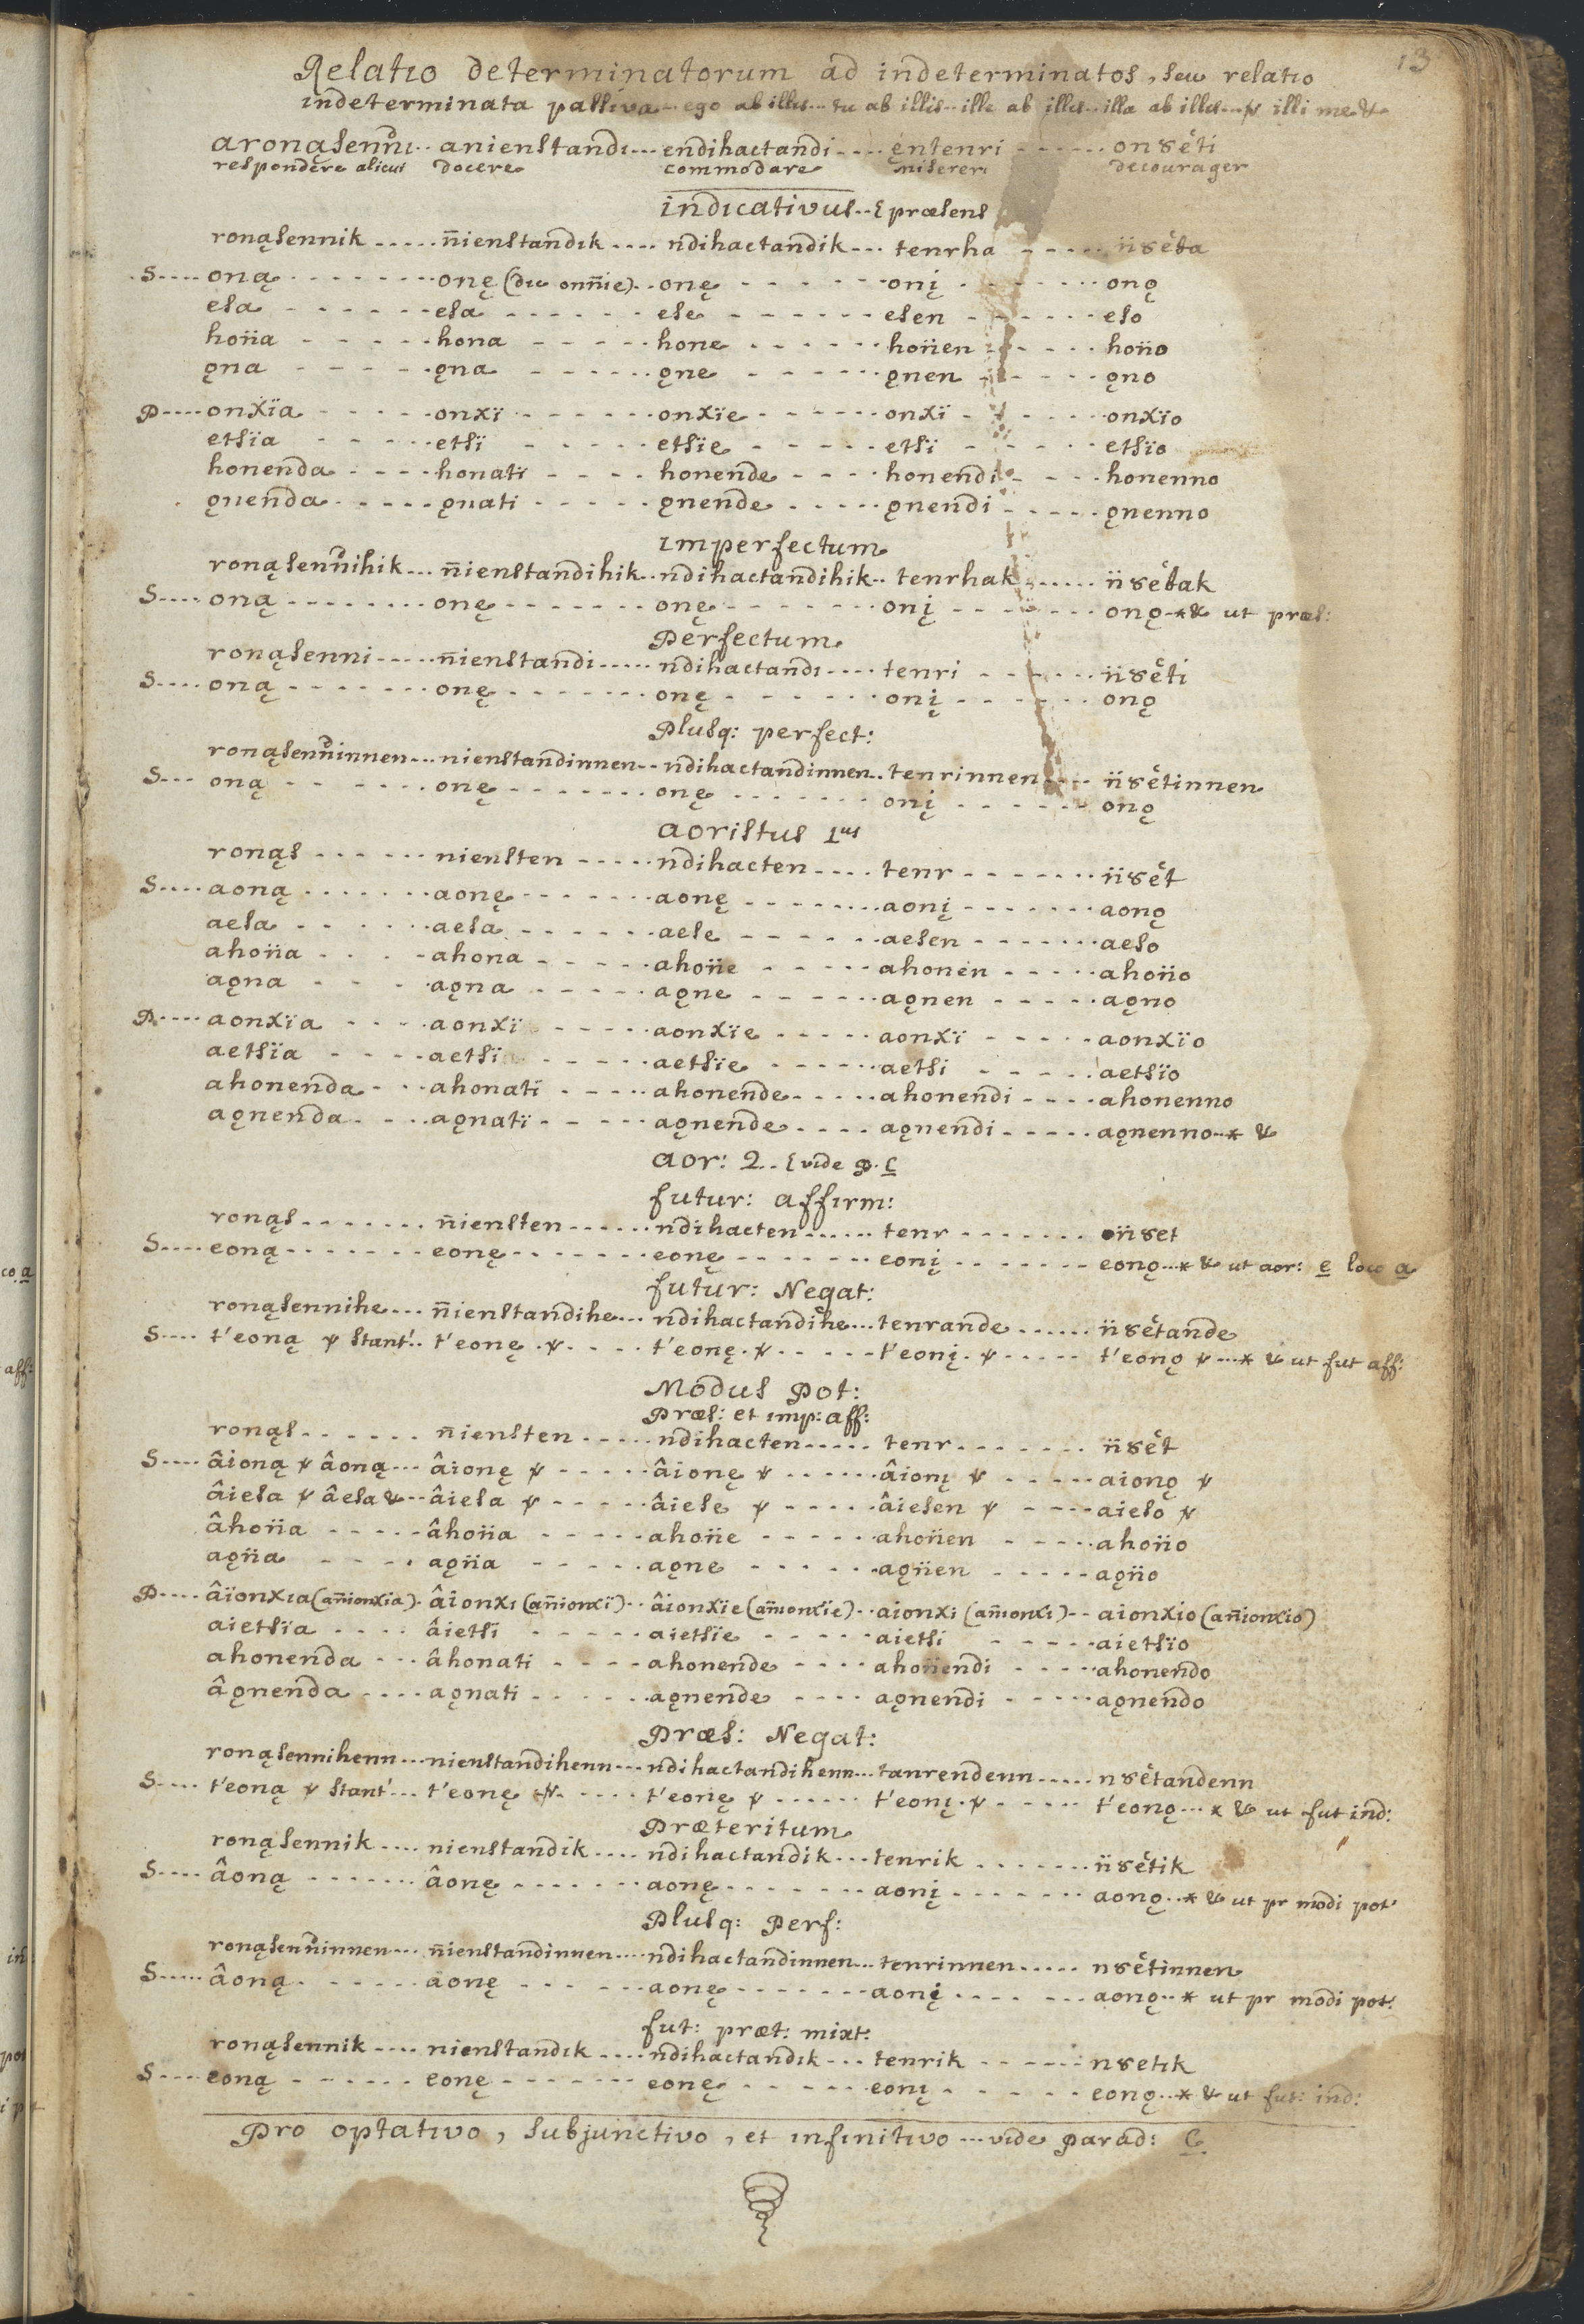 13
Relatio determinatorum ad indeterminatos, seu relatio
indeterminata passiva... ego ab illis... tu ab illis... ille ab illis... illa ab illis... illi me &
aronąsenni.. anienstandi... endihactandi .... ęntenri ...... onȣ̈ti
respondere alicui docere commodare misereri decourager
indicativus.. præsens
ronąsennik ..... n̈ienstandik .... ndihactandik ... tenrha ..... n̈ȣëta
S.... oną ........ onę (du onn̈ie).. onę ....... onį ........ onǫ
esa ...... esa ...... ese ...... esen ...... eso
hon̈a ..... hona ..... hone ...... hon̈en ..... hon̈o
ǫna ...... ǫna ...... ǫne ...... ǫnen ...... ǫno
P.... onxïa ..... onxï ...... onxïe ...... onxï ...... onxïo
etsïa ..... etsï ..... etsïe ..... etsï ..... etsïo
honenda .... honati ..... honende .... honendi .... honenno
ǫnenda ..... ǫnati ..... ǫnende ..... ǫnendi ..... ǫnenno
imperfectum
ronąsennihik... n̈ienstandihik.. ndihactandihik.. tenrhak ...... n̈ȣëtak
S.... oną ........ onę ....... onę ....... onį ....... onǫ..* & ut præs:
Perfectum
ronąsenni ..... n̈ienstandi ..... ndihactandi .... tenri ...... n̈ȣëti
S.... oną ....... onę ....... onę ...... onį ...... onǫ
Plusq: perfect:
ronąsenninnen... nienstandinnen.. ndihactandinnen.. tenrinnen .... n̈ȣëtinnen
S... oną ...... onę ....... onę ....... onį ...... onǫ
aoristus 1us
ronąs ...... niensten ..... ndihacten .... tenr ....... n̈ȣët
S.... aoną ....... aonę ....... aonę ........ aonį ....... aonǫ
aesa ...... aesa ...... aese ...... aesen ....... aeso
ahon̈a ..... ahona ..... ahon̈e ..... ahonen ..... ahon̈o
aǫna .... aǫna ..... aǫne ...... aǫnen ..... aǫno
P.... aonxïa .... aonxï ...... aonxïe ..... aonxï ..... aonxïo
aetsïa .... aetsï ...... aetsïe ...... aetsi ..... aetsïo
ahonenda .. ahonati ..... ahonende ..... ahonendi .... ahonenno
aǫnenda .... aǫnati ..... aǫnende .... aǫnendi ..... aǫnenno..* &
aor: 2.. vide P. C
futur: affirm:
ronąs ....... n̈iensten ...... ndihacten ...... tenr ....... n̈ȣet
S.... eoną ....... eonę ....... eonę ....... eonį ....... eonǫ..* & ut aor: e loco a
futur: Negat:
ronąsennihe... n̈ienstandihe... ndihactandihe... tenrande ...... n̈ȣëtande
S.... t'eoną stant'.. t'eonę ..... t'eonę ..... t'eonį ..... t'eonǫ ...* & ut fut aff:
Modus Pot:
Præs: et imp: aff:
ronąs ...... n̈iensten ..... ndihacten ..... tenr ....... n̈ȣët
S.... âioną âoną... âionę ..... âionę ...... âionį ..... aionǫ
âiesa âesa &.. âiesa ..... âiese ..... âiesen .... aieso
âhon̈a ..... âhon̈a ..... ahon̈e ..... ahon̈en ..... ahon̈o
aǫn̈a .... aǫn̈a ..... aǫne ...... aǫn̈en ..... aǫn̈o
P.... âïonxia (an̈ionxia).. âïonxi (an̈ionxï).. âionxïe (an̈ionxïe).. aionxi (an̈ionxi).. aionxio (an̈ionxio)
aietsïa .... âietsi ...... aietsïe ..... aietsi ..... aietsïo
ahonenda ... âhonati .... ahonende .... ahon̈endi ..... ahonendo
âǫnenda .... aǫnati ...... aǫnende .... aǫnendi ..... aǫnendo
Præs: Negat:
ronąsennihenn... nienstandihenn... ndihactandihenn... tanrendenn ..... nȣëtandenn
S.... t'eoną stant'... t'eonę ..... t'eonę ...... t'eonį ..... t'eonǫ...* & ut fut ind:
Præteritum
ronąsennik .... nienstandik .... ndihactandik ... tenrik ....... n̈ȣëtik
S.... âoną ....... âonę ....... aonę ....... aonį ....... aonǫ..* & ut pr modi pot:
Plusq: Perf:
ronąsenninnen... n̈ienstandinnen.... ndihactandinnen... tenrinnen ..... nȣëtinnen
S..... âoną ...... aonę ...... aonę ....... aonį ....... aonǫ..* ut pr modi pot:
fut: præt: mixt:
ronąsennik .... nienstandik .... ndihactandik ... tenrik ...... nȣetik
S.... eoną ...... eonę ....... eonę ...... eonį ...... eonǫ..* & ut fut: ind:
Pro optativo, subjunctivo, et infinitivo ... vide Parad: C.